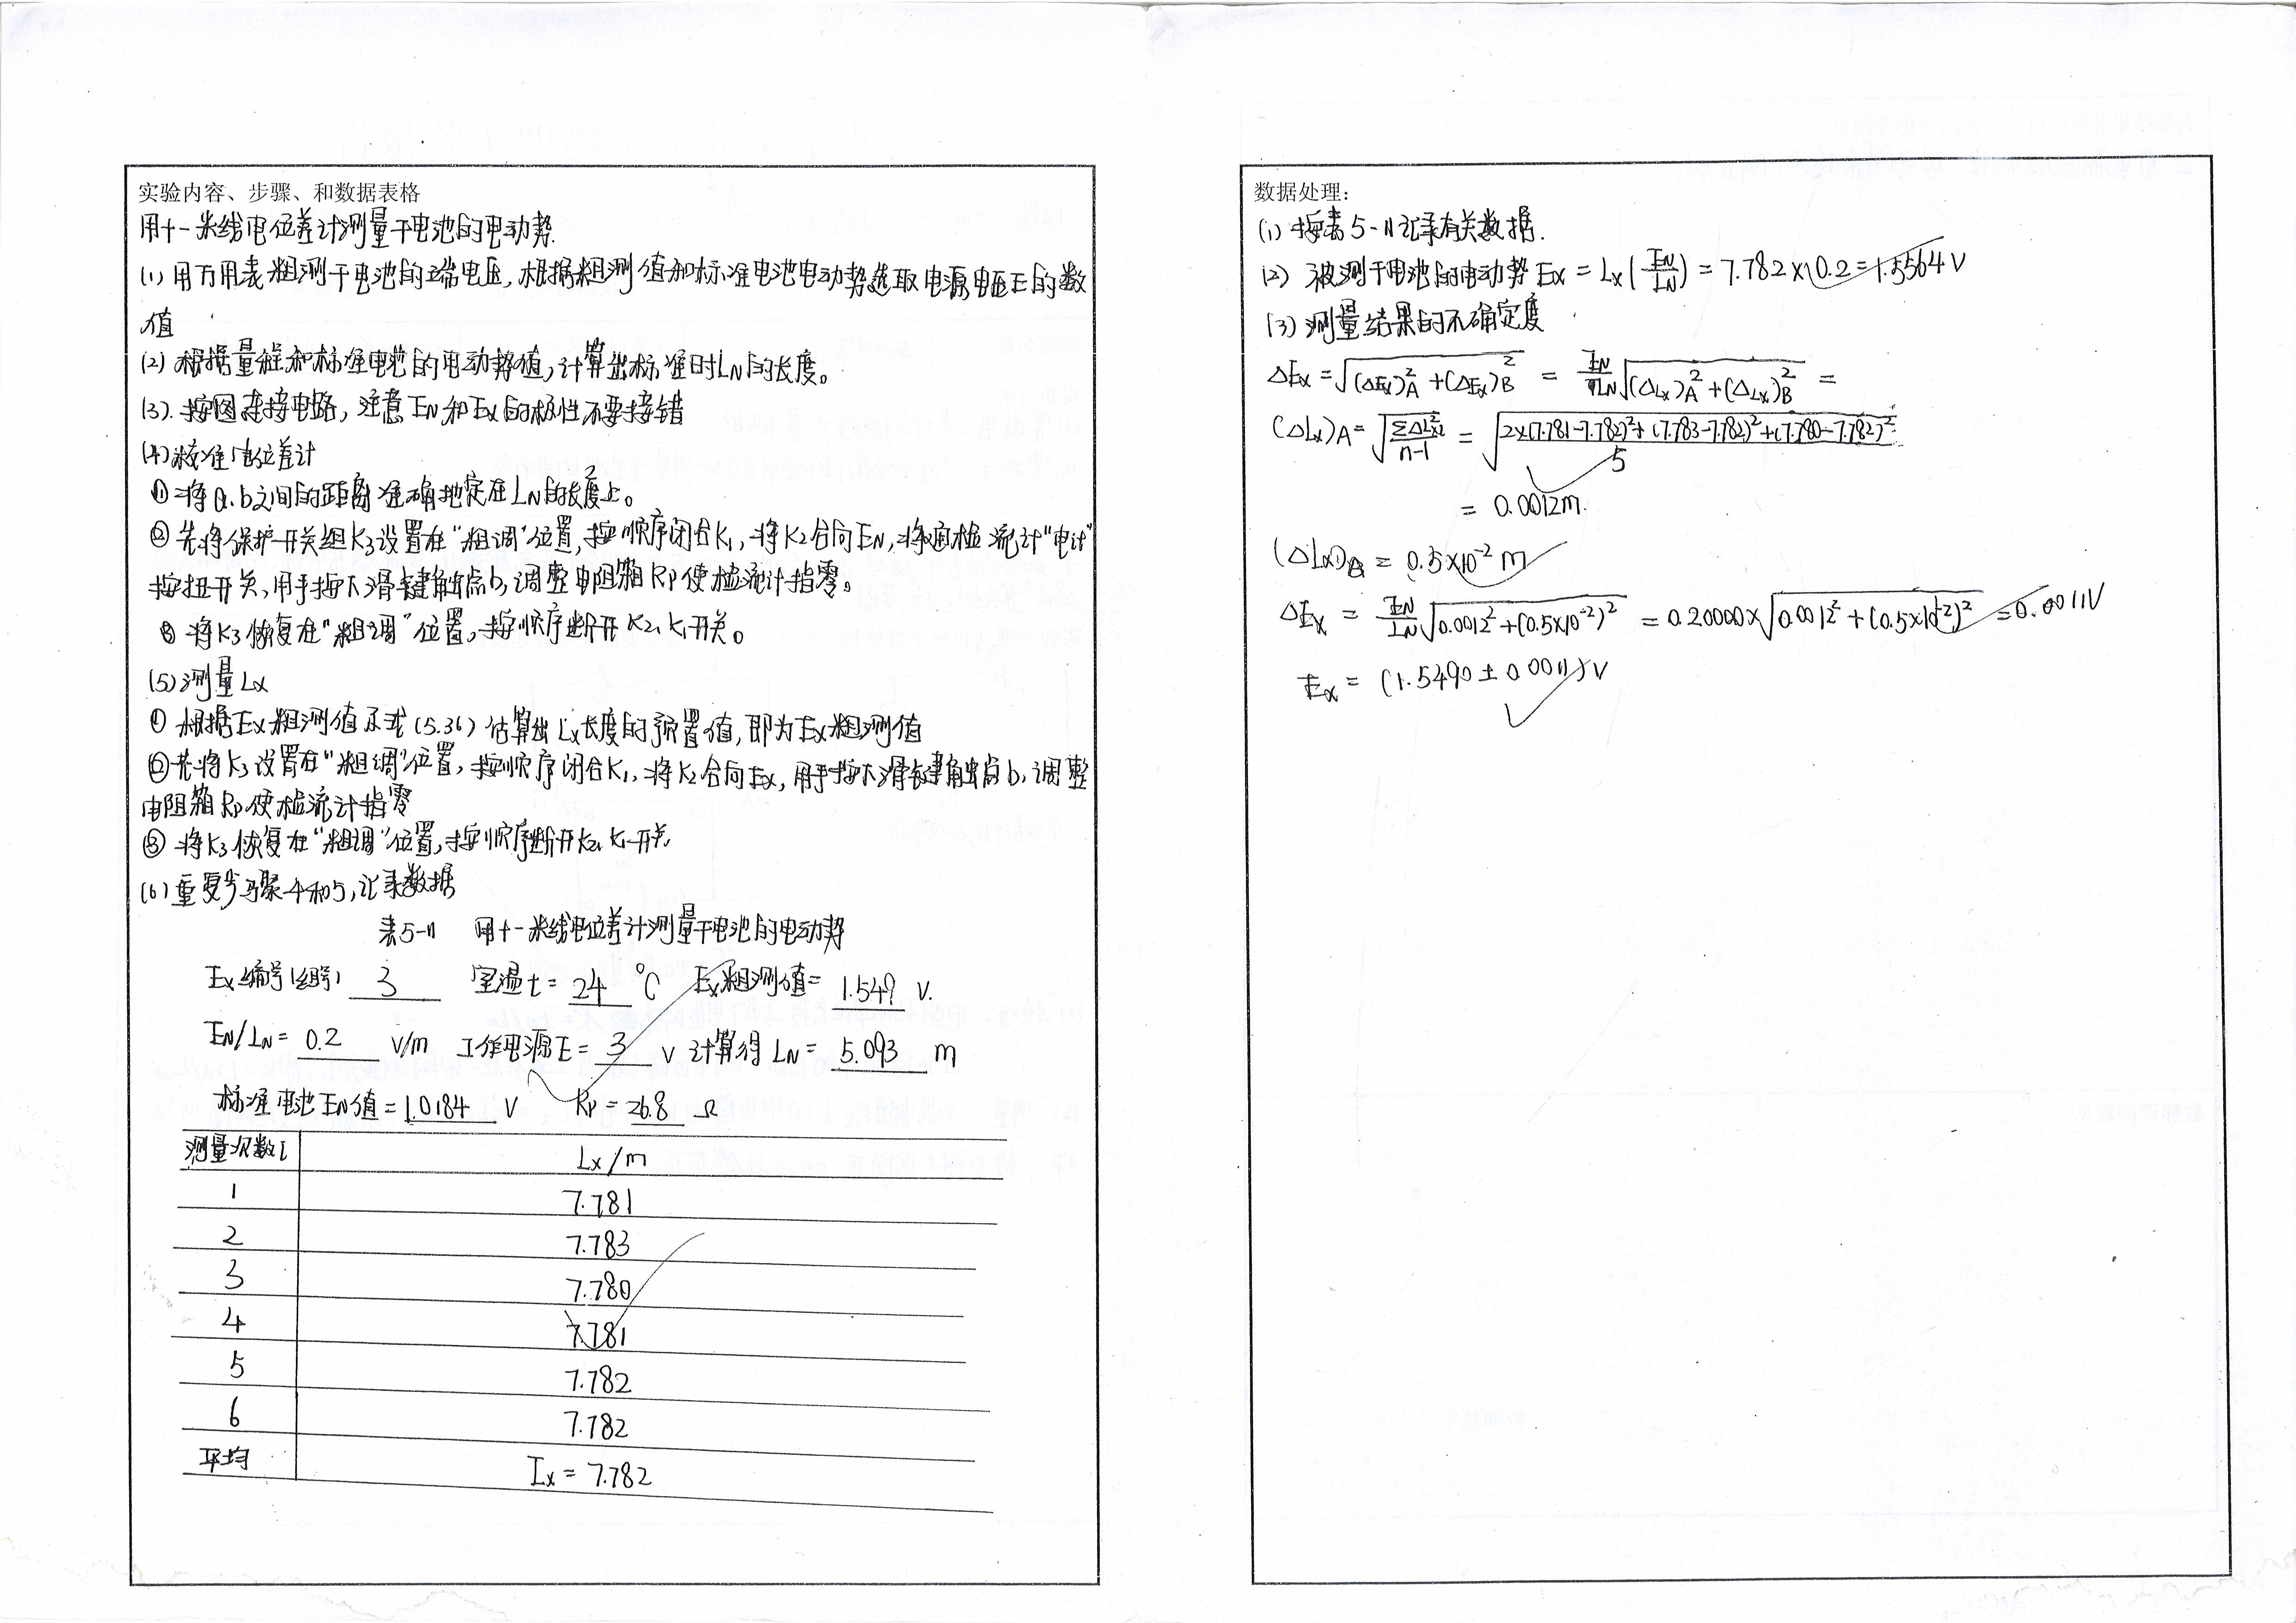 实验内容、步骤、和数据表格
用十一米线电位差计测量干电池的电动势.
(1) 用万用表粗测干电池的端电压,根据粗测值和标准电池电动势选取电源电压E的数
值
(2) 根据量程和标准电池的电动势值,计算出标准时LN的长度。
(3). 按图连接电路,注意EN和Ex的极性不要接错
(4) 校准电位差计
① 将a.b之间的距离准确地定在LN的长度上。
② 先将保护开关组K3设置在"粗调"位置,按顺序闭合K1,将K2合向EN,将通检流计"电计"
按扭开关,用手按下滑键触点b,调整电阻箱Rp使检流计指零。
③ 将K3恢复在"粗调"位置,按顺序断开K2,K1开关。
(5) 测量Lx
① 根据Ex粗测值示式(5.36)估算出Lx长度的预置值,即为Ex粗测值
② 先将K3设置在"粗调"位置,按顺序闭合K1,将K2合向Ex,用手按下滑键触点b,调整
电阻箱Rp使检流计指零
③ 将K3恢复在"粗调"位置,按顺序断开K2,K1开关
(6) 重复步骤4和5,记录数据
表5-11 用十一米线电位差计测量干电池的电动势
Ex编号(组号) 3 室温t= 24 ℃ Ex粗测值= 1.549 V.
EN/LN= 0.2 V/m 工作电源E= 3 V 计算得LN= 5.093 m
标准电池EN值=1.0184 V Rp=26.8 Ω
测量次数i Lx/m
1 7.781
2 7.783
3 7.780
4 7.781
5 7.782
6 7.782
平均 L̄x = 7.782
数据处理:
(1) 按表5-11记录有关数据.
(2) 被测干电池的电动势 Ex = Lx(EN/LN) = 7.782×0.2 = 1.5564V
(3) 测量结果的不确定度
ΔEx = √((ΔEx)A² + (ΔEx)B²) = EN/LN √((ΔLx)A² + (ΔLx)B²) =
(ΔLx)A = √(ΣΔLxi²/(n-1)) = √((2×(7.781-7.782)²+(7.783-7.782)²+(7.780-7.782)²)/5)
= 0.0012m.
(ΔLx)B = 0.5×10⁻² m
ΔEx = EN/LN √(0.0012²+(0.5×10⁻²)²) = 0.20000×√(0.0012²+(0.5×10⁻²)²) = 0.0011V
Ex = (1.5490 ± 0.0011)V